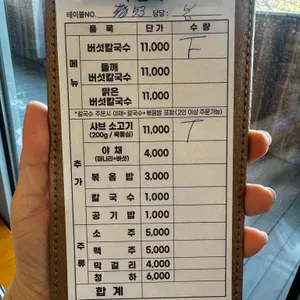 테이블NO. 53 담당:
품 목 단 가 수 량
메뉴
버섯칼국수 11,000 T
들깨
버섯칼국수 11,000
맑은
버섯칼국수 11,000
*칼국수 주문시 야채+칼국수+볶음밥 포함(2인 이상 주문가능)
추가
샤브 소고기
(200g / 목심) 11,000 T
야 채
(미나리+버섯) 4,000
볶 음 밥 3,000
칼 국 수 1,000
공 기 밥 1,000
주류
소 주 5,000
맥 주 5,000
막 걸 리 4,000
청 하 6,000
합 계